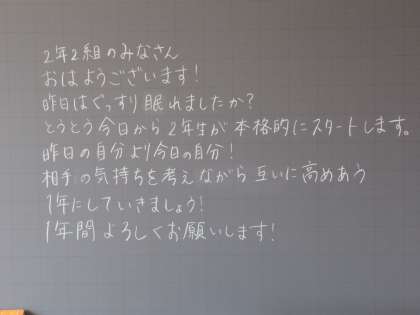 2年2組のみなさん
おはようございます!
昨日はぐっすり眠れましたか?
とうとう今日から2年生が本格的にスタートします。
昨日の自分より今日の自分!
相手の気持ちを考えながら互いに高めあう
1年にしていきましょう!
1年間よろしくお願いします!